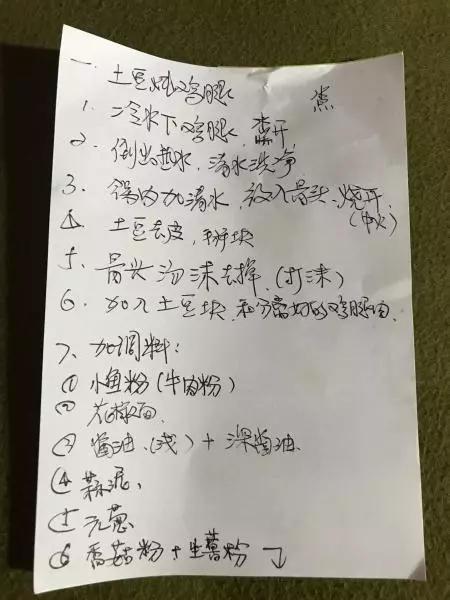 一. 土豆炖鸡腿
1. 冷水下鸡腿, 煮开
2. 倒出热水, 清水洗净
3. 锅内加清水, 放入骨头、烧开 (中火)
4. 土豆去皮, 掰块
5. 骨头汤沫去掉.(打沫)
6. 加入土豆块和分离好的鸡腿肉.
7、加调料:
① 小鱼粉(牛肉粉)
② 花椒面.
③ 酱油.(浅) + 深酱油.
④ 蒜泥、
⑤ 元葱
⑥ 香菇粉 + 生薯粉 ↓